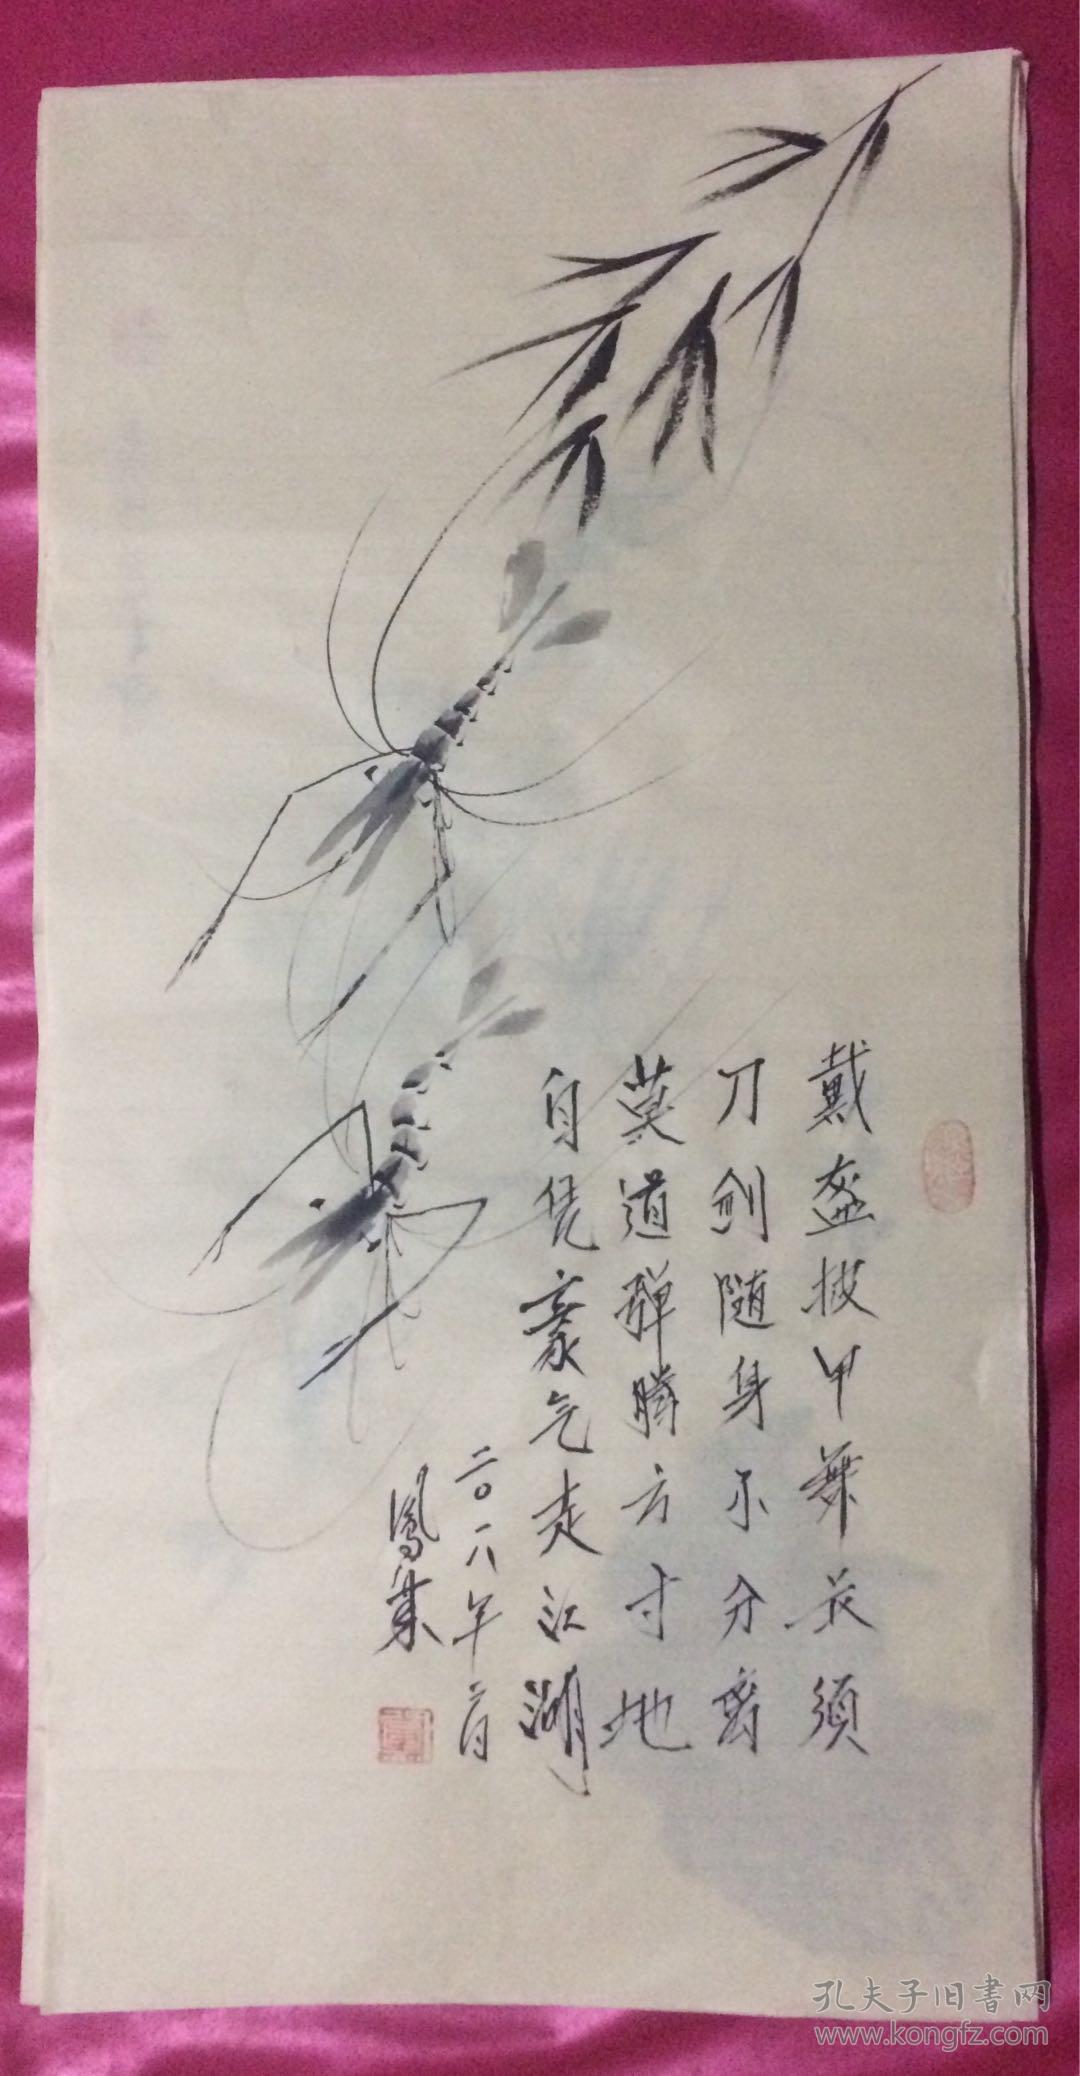 戴盔披甲舞长须
刀剑随身不分离
莫道弹腾方寸地
自凭豪气走江湖
二〇一八年二月
凤集
孔夫子旧書网
www.kongfz.com